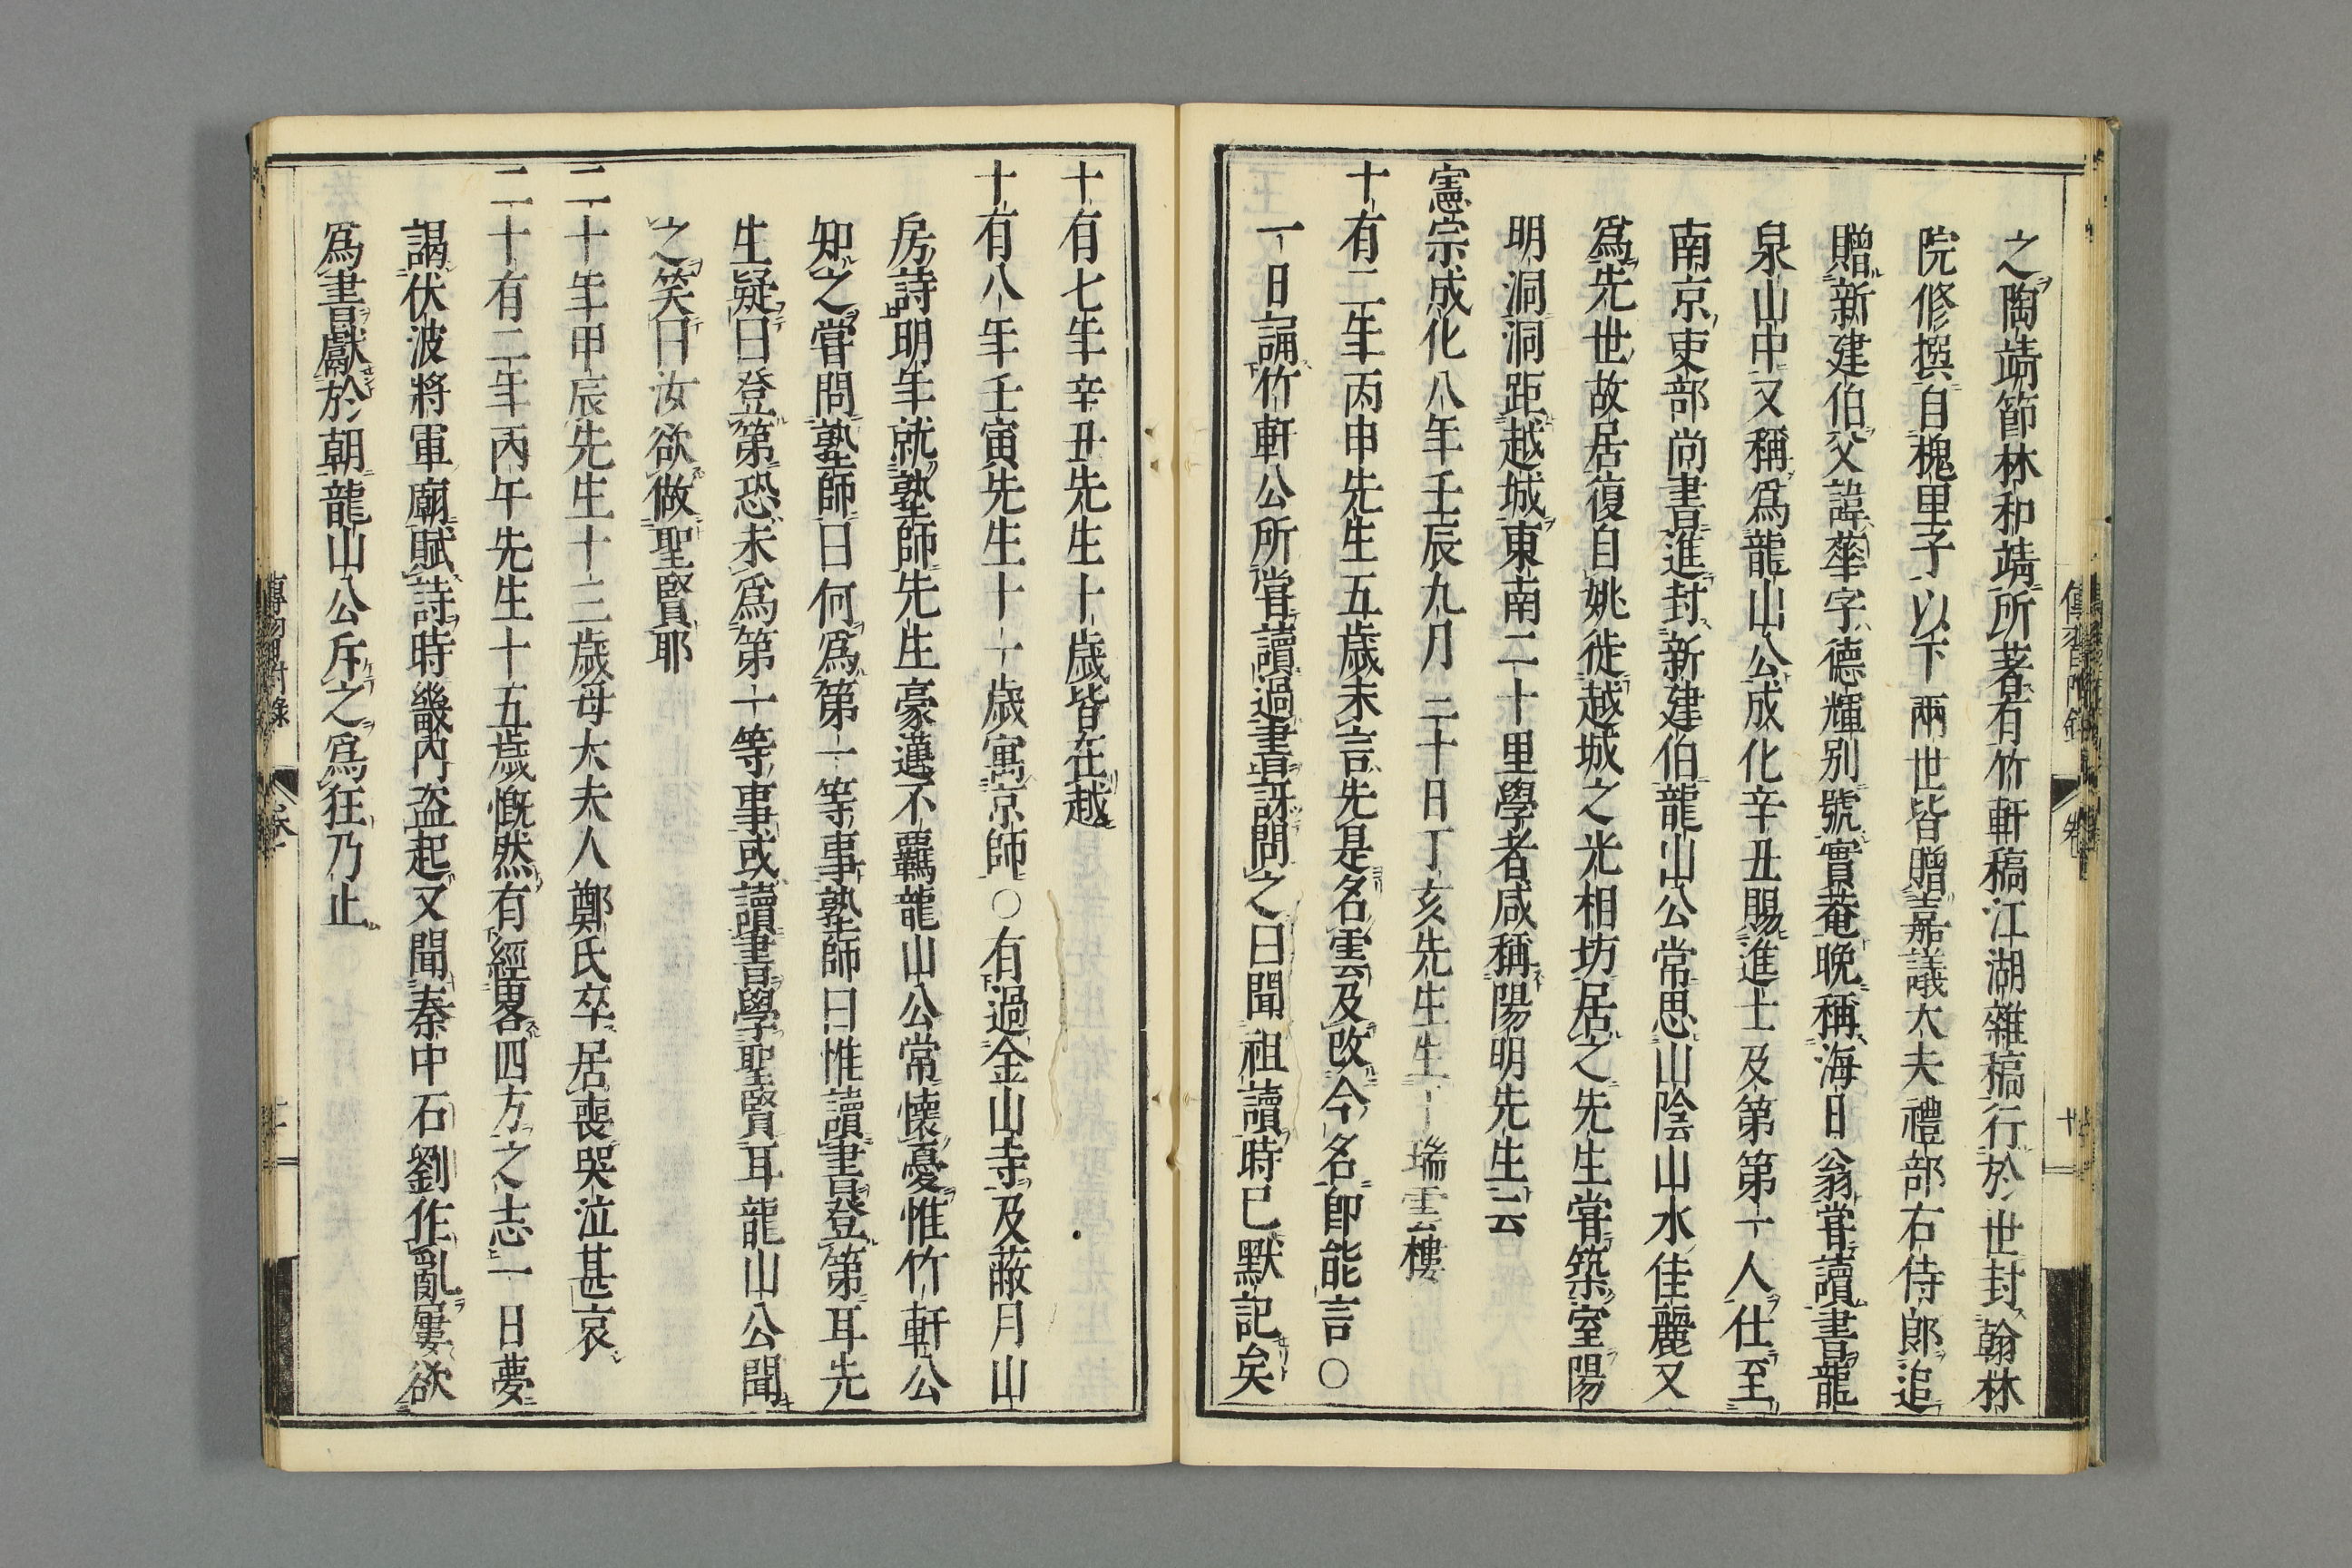 之陶靖節林和靖所著有竹軒稿江湖雜稿行於世封翰林
院修撰自槐里子以下兩世皆贈嘉議大夫禮部右侍郎追
贈新建伯父諱華字德輝别號實菴晩稱海日翁嘗讀書龍
泉山中又稱爲龍山公成化辛丑賜進士及第第一人仕至
南京吏部尚書進封新建伯龍山公常思山陰山水佳麗又
爲先世故居復自姚徙越城之光相坊居之先生嘗築室陽
明洞洞距越城東南二十里學者咸稱陽明先生云
憲宗成化八年壬辰九月三十日丁亥先生生于瑞雲樓
十有二年丙申先生五歲未言先是名雲及改今名即能言○
一日誦竹軒公所嘗讀過書訝問之曰聞祖讀時已默記矣
十有七年辛丑先生十歲皆在越
十有八年壬寅先生十一歲寓京師○有過金山寺及蔽月山
房詩明年就塾師先生豪邁不羈龍山公常懷憂惟竹軒公
知之嘗問塾師曰何爲第一等事塾師曰惟讀書登第耳先
生疑曰登第恐未爲第一等事或讀書學聖賢耳龍山公聞
之笑曰汝欲做聖賢耶
二十年甲辰先生十三歲母太夫人鄭氏卒居喪哭泣甚哀
二十有二年丙午先生十五歲慨然有經畧四方之志一日夢
謁伏波將軍廟賦詩時畿内盗起又聞秦中石劉作亂屢欲
爲書獻於朝龍山公斥之爲狂乃止